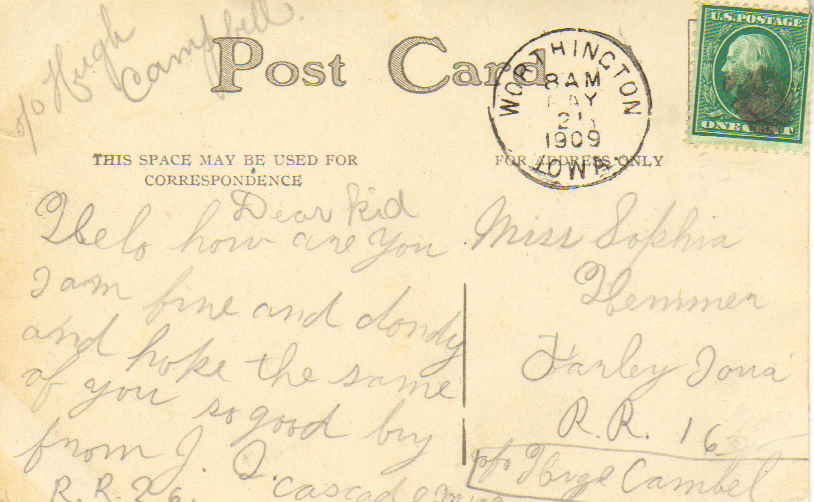 c/o Hugh
Campbell.
Post Card
U.S. POSTAGE
ONE CENT
WORTHINGTON
8 AM
MAY
21
1909
IOWA.
THIS SPACE MAY BE USED FOR
CORRESPONDENCE
FOR ADDRESS ONLY
Dear Kid
Helo how are you
I am fine and dondy
and hope the same
of you so good by
from J. Q.
R. R. 26. Cascade
Miss Sophia
Hemmer
Farley Iowa
R. R. 16
c/o Huge Cambel